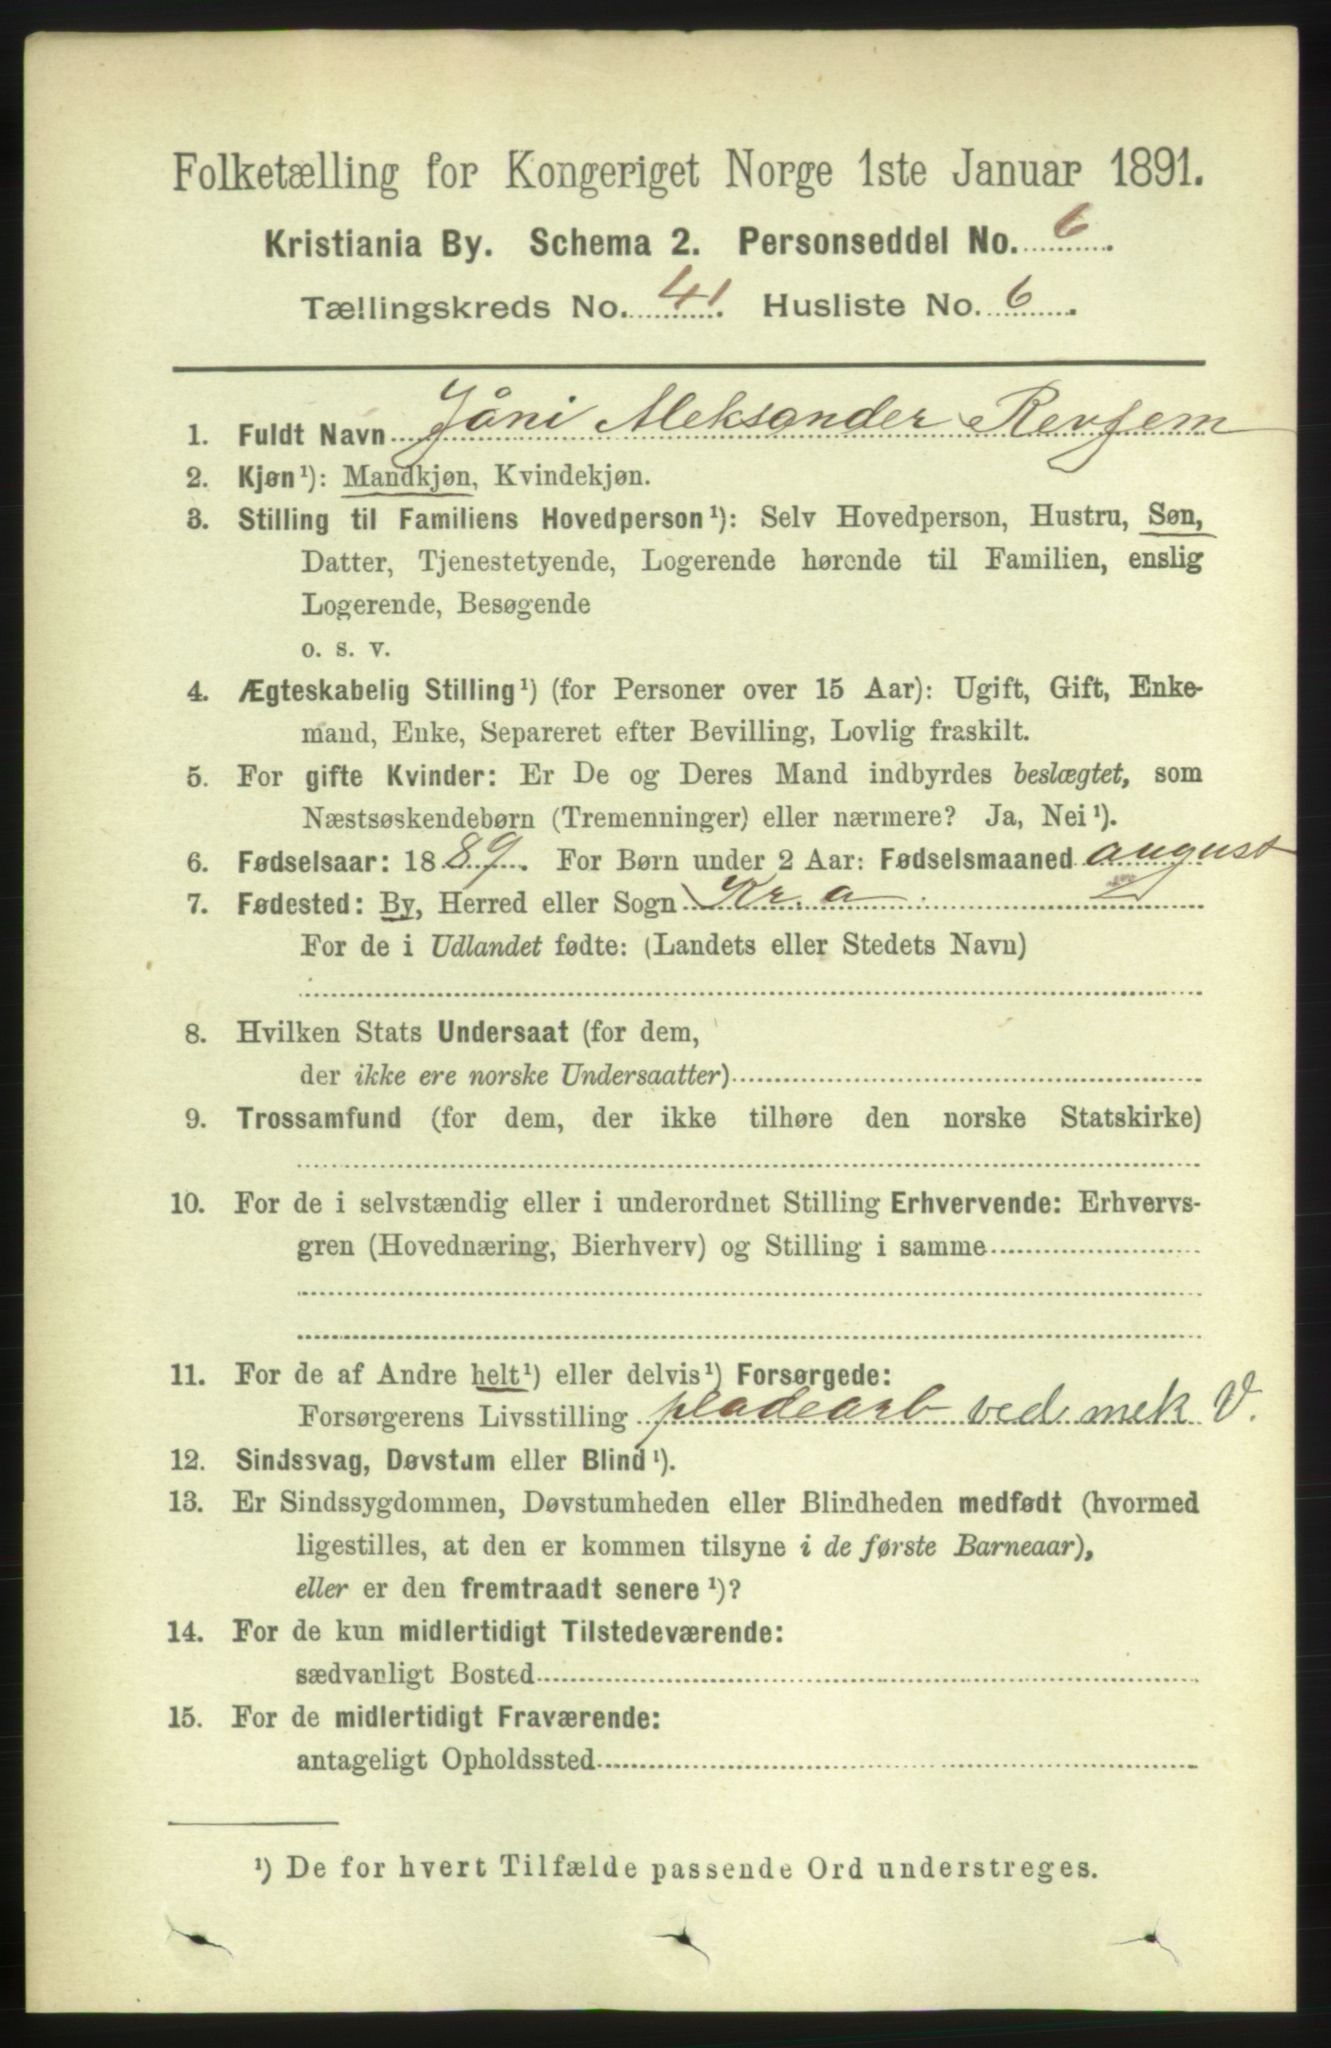 Folketælling for Kongeriget Norge 1ste Januar 1891.
Kristiania By. Schema 2. Personseddel No. 6.
Tællingskreds No. 41. Husliste No. 6.
1. Fuldt Navn Jåni Aleksander Revfem
2. Kjøn¹): Mandkjøn, Kvindekjøn.
3. Stilling til Familiens Hovedperson¹): Selv Hovedperson, Hustru, Søn,
Datter, Tjenestetyende, Logerende hørende til Familien, enslig
Logerende, Besøgende
o. s. v.
4. Ægteskabelig Stilling¹) (for Personer over 15 Aar): Ugift, Gift, Enke-
mand, Enke, Separeret efter Bevilling, Lovlig fraskilt.
5. For gifte Kvinder: Er De og Deres Mand indbyrdes beslægtet, som
Næstsøskendebørn (Tremenninger) eller nærmere? Ja, Nei¹).
6. Fødselsaar: 1889. For Børn under 2 Aar: Fødselsmaaned august
7. Fødested: By, Herred eller Sogn Kr. a
For de i Udlandet fødte: (Landets eller Stedets Navn)
8. Hvilken Stats Undersaat (for dem,
der ikke ere norske Undersaatter)
9. Trossamfund (for dem, der ikke tilhøre den norske Statskirke)
10. For de i selvstændig eller i underordnet Stilling Erhvervende: Erhvervs-
gren (Hovednæring, Bierhverv) og Stilling i samme
11. For de af Andre helt¹) eller delvis¹) Forsørgede:
Forsørgerens Livsstilling pladearb ved mek V.
12. Sindssvag, Døvstum eller Blind¹).
13. Er Sindssygdommen, Døvstumheden eller Blindheden medfødt (hvormed
ligestilles, at den er kommen tilsyne i de første Barneaar),
eller er den fremtraadt senere¹)?
14. For de kun midlertidigt Tilstedeværende:
sædvanligt Bosted
15. For de midlertidigt Fraværende:
antageligt Opholdssted
¹) De for hvert Tilfælde passende Ord understreges.